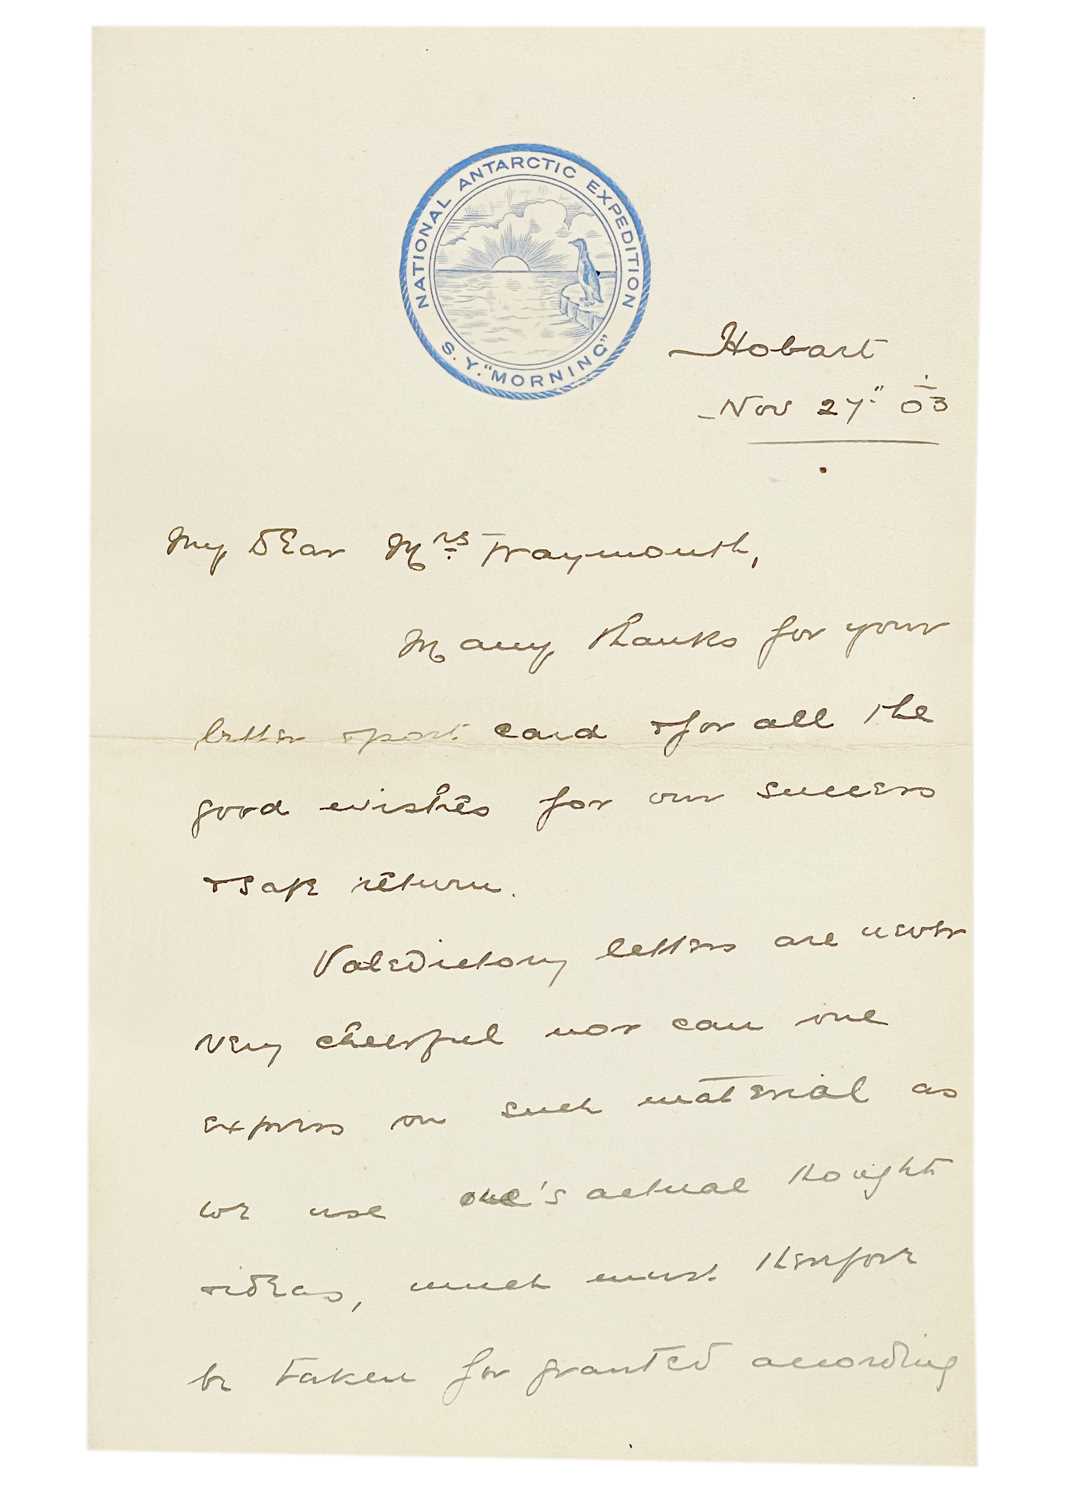 NATIONAL ANTARCTIC EXPEDITION
S.Y. "MORNING"
Hobart
Nov 27" 03
My dear Mrs Traymouth,
Many thanks for your
letter & post card & for all the
good wishes for our success
& safe return.
Valedictory letters are never
very cheerful nor can one
express on such material as
we use one's actual thought
& ideas, much must therefore
be taken for granted according